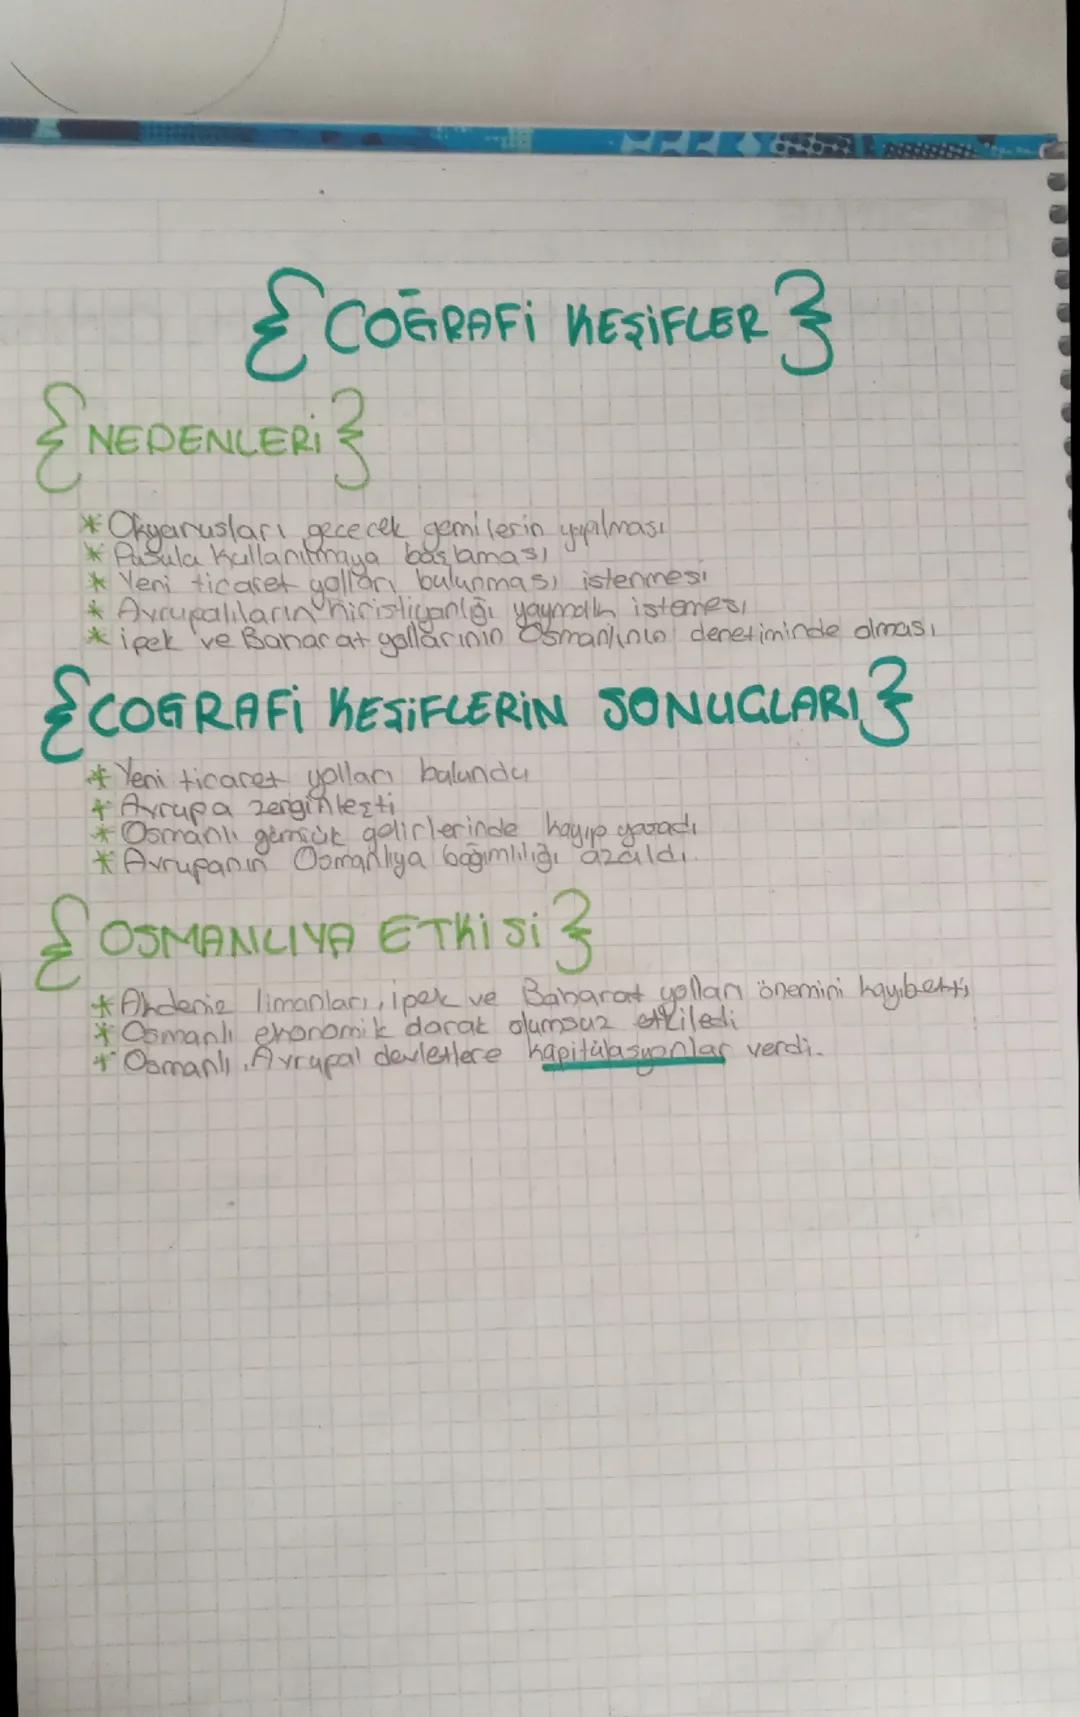 {COĞRAFİ KEŞİFLER}
{NEDENLERİ}
* Okyanusları geçecek gemilerin yapılması
* Pusula kullanılmaya başlaması
* Yeni ticaret yolları bulunması istenmesi
* Avrupalıların hiristiyanlığı yaymak istemesi
* ipek ve Baharat yollarının Osmanlının denetiminde olması
{COGRAFİ KEŞİFLERİN SONUÇLARI}
* Yeni ticaret yolları bulundu
* Avrupa zenginleşti
* Osmanlı gümrük gelirlerinde kayıp yaşadı
* Avrupanın Osmanlıya bağımlılığı azaldı.
{OSMANLIYA ETKİSİ}
* Akdeniz limanları, ipek ve Baharat yolları önemini kayıbetti
* Osmanlı ekonomik darak olumsuz etkiledi
* Osmanlı, Avrupal devletlere kapitülasyonlar verdi.